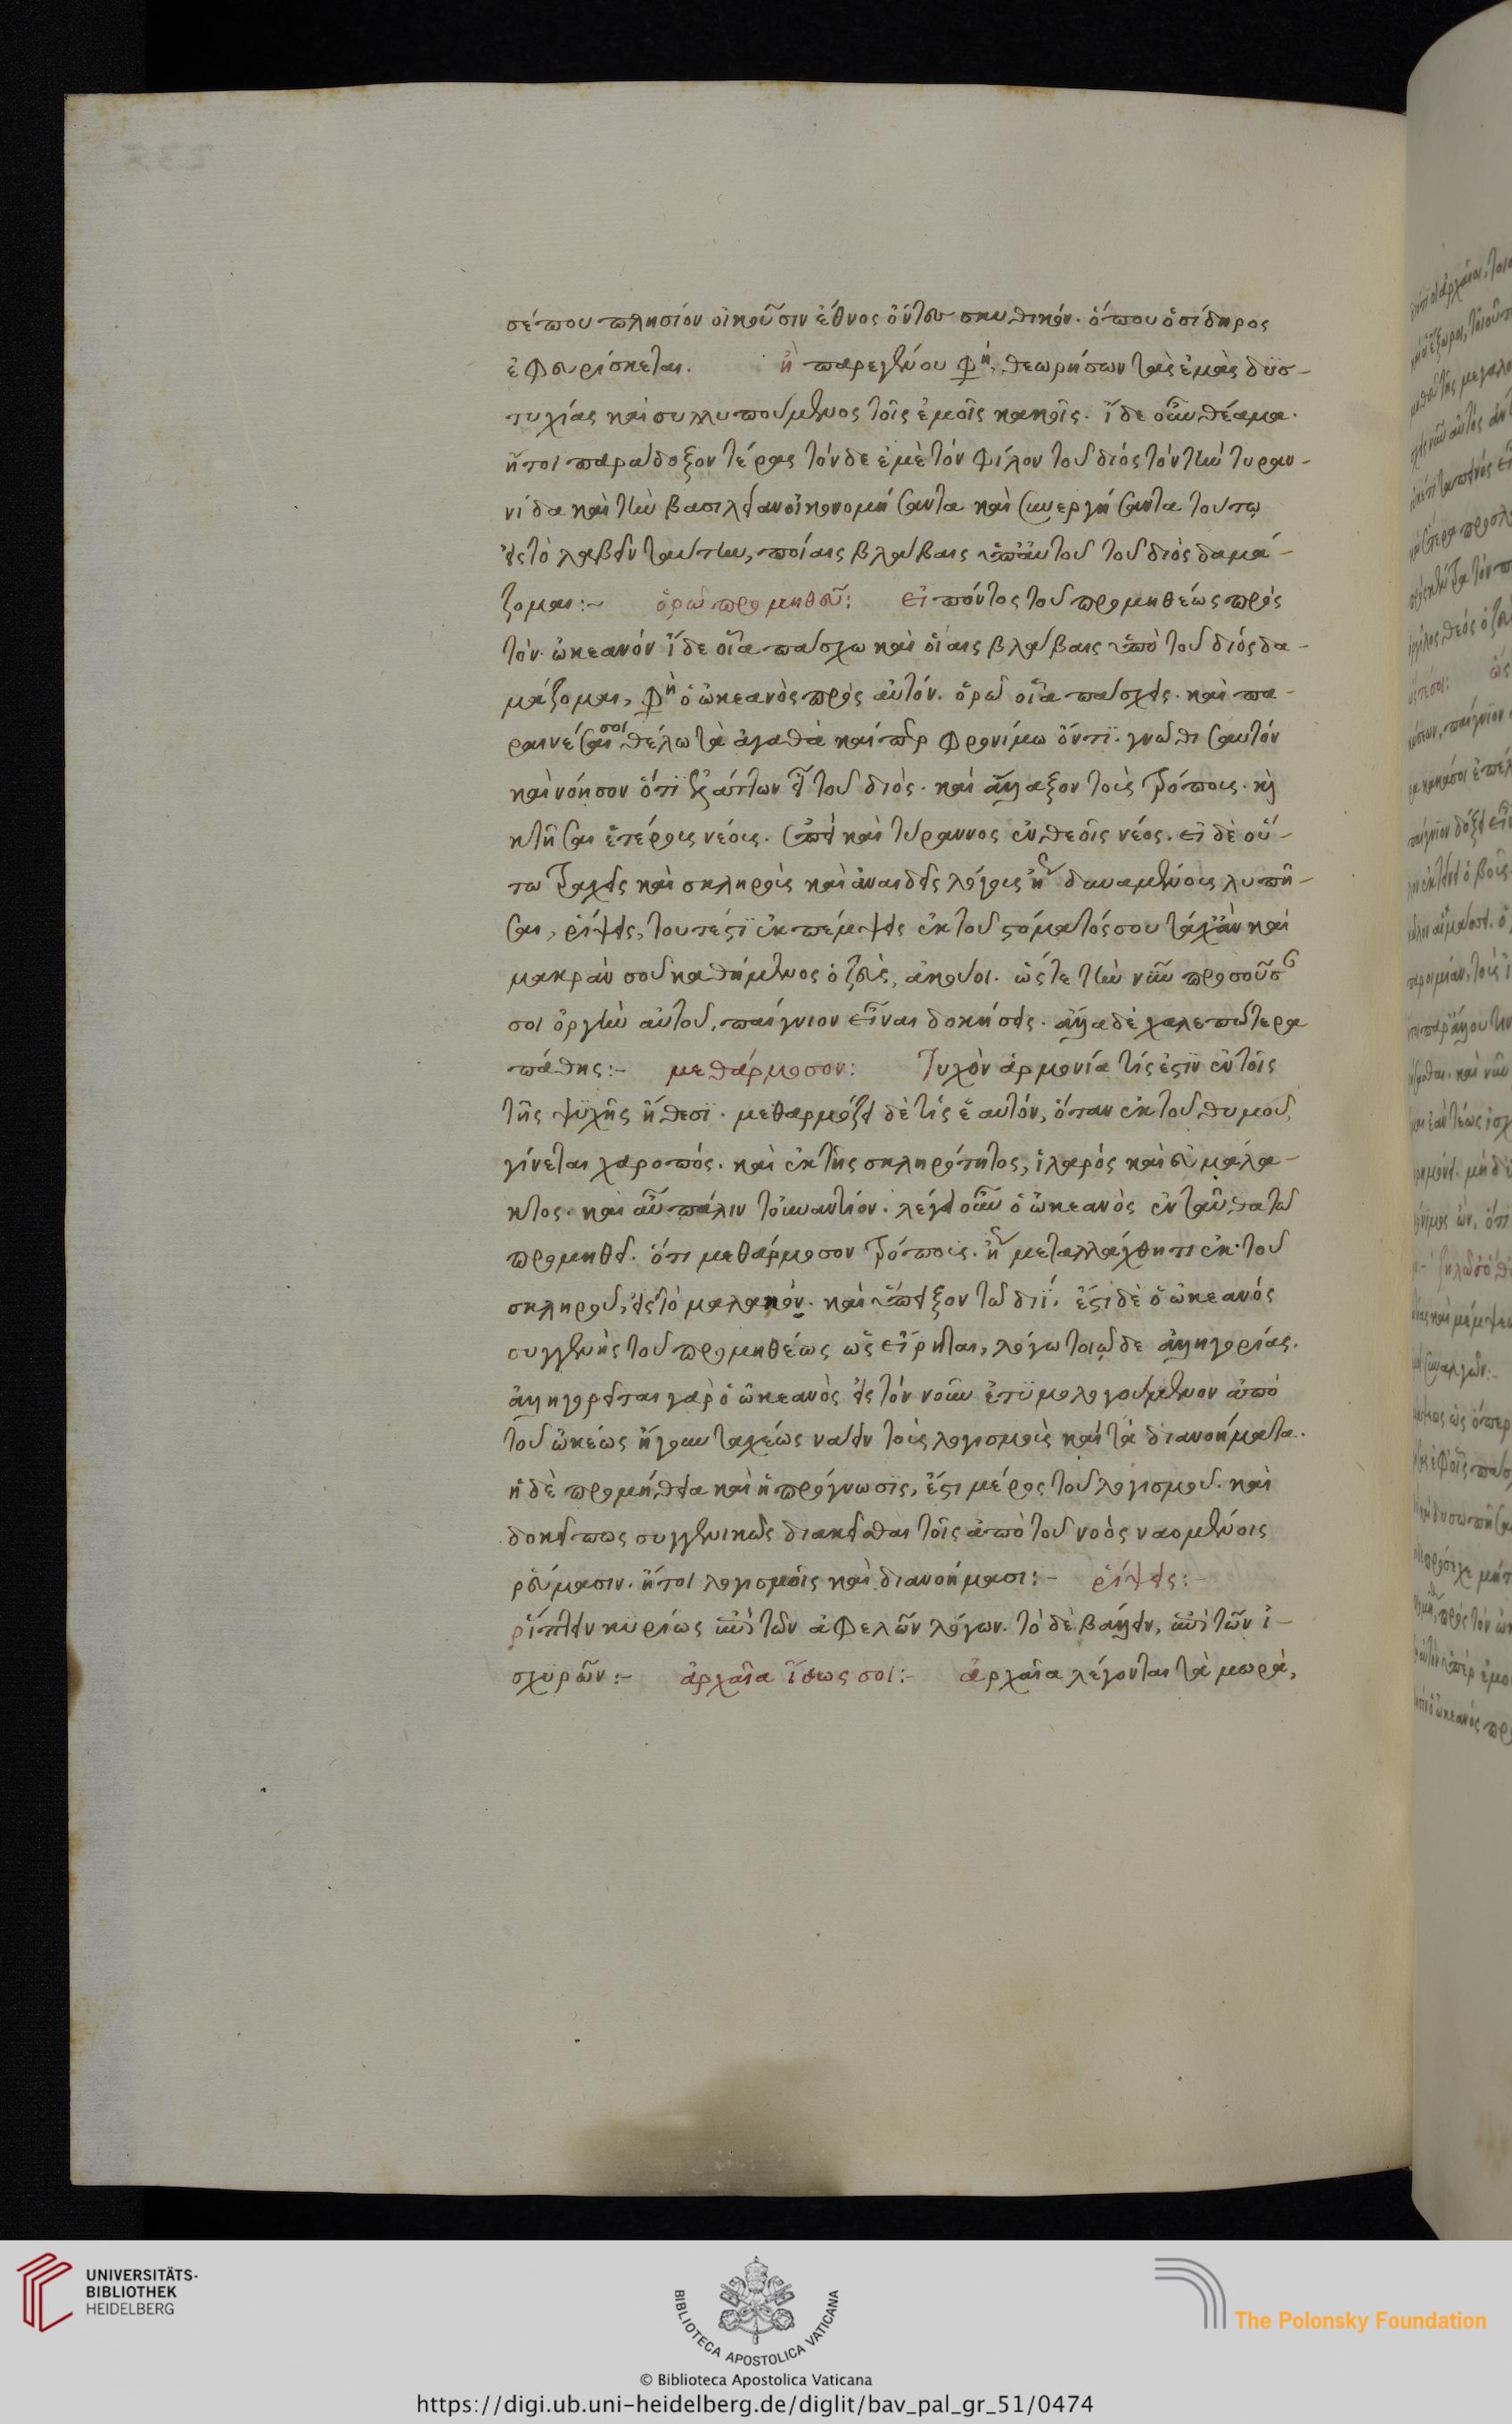 σέπου πλησίον οἰκοῦσιν ἔθνος ὄντες σκυθικόν. ὅπου ὁ σίδηρος
ἐφευρίσκεται. ἢ παρεγένου φη, θεωρήσων τὰς ἐμὰς δυσ-
τυχίας καὶ συλλυπούμενος τοῖς ἐμοῖς κακοῖς. ἴδε οὖν θέαμα.
ἤτοι παράδοξον τέρας τόνδε ἐμὲ τὸν φίλον τοῦ διός τὸν τὴν τυραν-
νίδα καὶ τὴν βασιλείαν οἰκονομήσαντα καὶ συνεργήσαντα τούτῳ
εἰς τὸ λαβεῖν ταύτην, ποίαις βλάβαις ὑπ' αὐτοῦ τοῦ διὸς δαμά-
ζομαι:~ ὁρῶ προμηθεῦ: εἰπόντος τοῦ προμηθέως πρὸς
τὸν ὠκεανόν ἴδε οἷα πάσχω καὶ οἵαις βλάβαις ὑπὸ τοῦ διός δα-
μάζομαι, φη ὁ ὠκεανὸς πρὸς αὐτόν. ὁρῶ οἷα πάσχεις. καὶ πα-
ραινέσαι σοι θέλω τὰ ἀγαθὰ καίπερ φρονίμω ὄντι. γνῶθι σαυτόν
καὶ νόησον ὅτι ἥττων εἶ τοῦ διός. καὶ ἄλλαξον τοὺς τρόπους. καὶ
κτῆσαι ἑτέρους νέους. ἐπεὶ καὶ τύραννος ἐν θεοῖς νέος. εἰ δὲ οὕ-
τω τραχεῖς καὶ σκληροὺς καὶ ἀναιδεῖς λόγους ἢ δυναμένους λυπῆ-
σαι, ῥίψεις, τουτέστι ἐκπέμψεις ἐκ τοῦ στόματός σου τάχ' ἂν καὶ
μακράν σου καθήμενος ὁ ζεὺς, ἀκούοι. ὥστε τὴν νῦν προσοῦσαν
σοι ὀργὴν αὐτοῦ, παίγνιον εἶναι δοκήσεις. ἀλλὰ δὲ χαλεπώτερα
πάθῃς:- μεθάρμοσον: Τυχὸν ἁρμονία τίς ἐστιν ἐν τοῖς
τῆς ψυχῆς ἤθεσι. μεθαρμόζει δὲ τίς ἑαυτόν, ὅταν ἐκ τοῦ θυμοῦ,
γίνεται χαροπός. καὶ ἐκ τῆς σκληρότητος, ἱλαρός καὶ εὐμάλα-
κτος. καὶ αὖ πάλιν τοὐναντίον. λέγει οὖν ὁ ὠκεανὸς ἐνταῦθα τῶ
προμηθεῖ. ὅτι μεθάρμοσον τρόπους. ἢ μεταλλάχθητι ἐκ τοῦ
σκληροῦ, εἰς τὸ μαλακόν. καὶ ὕπειξον τῶ διΐ. ἔστι δὲ ὁ ὠκεανός
συγγενὴς τοῦ προμηθέως ὡς εἴρηται, λόγω τοιῷδε ἀλληγορίας.
ἀλληγορεῖται γὰρ ὁ ὠκεανὸς εἰς τὸν νοῦν ἐτυμολογούμενον ἀπὸ
τοῦ ὠκέως ἤγουν ταχέως νάειν τοὺς λογισμοὺς καὶ τὰ διανοήματα.
ἡ δὲ προμήθεια καὶ ἡ πρόγνωσις, ἔστι μέρος τοῦ λογισμοῦ. καὶ
δοκεῖ πως συγγενικῶς διακεῖσθαι τοῖς ἀπὸ τοῦ νοὸς ναομένοις
ῥεύμασιν. ἤτοι λογισμοῖς καὶ διανοήμασι:- ῥίψεις:-
ῥίπτειν κυρίως ἐπὶ τῶν ἀφελῶν λόγων. τὸ δὲ βάλλειν, ἐπὶ τῶν ἰ-
σχυρῶν:- ἀρχαῖα ἴσως σοι:- ἀρχαῖα λέγονται τὰ μωρά,
UNIVERSITÄTS-
BIBLIOTHEK
HEIDELBERG
BIBLIOTECA APOSTOLICA VATICANA
The Polonsky Foundation
© Biblioteca Apostolica Vaticana
https://digi.ub.uni-heidelberg.de/diglit/bav_pal_gr_51/0474